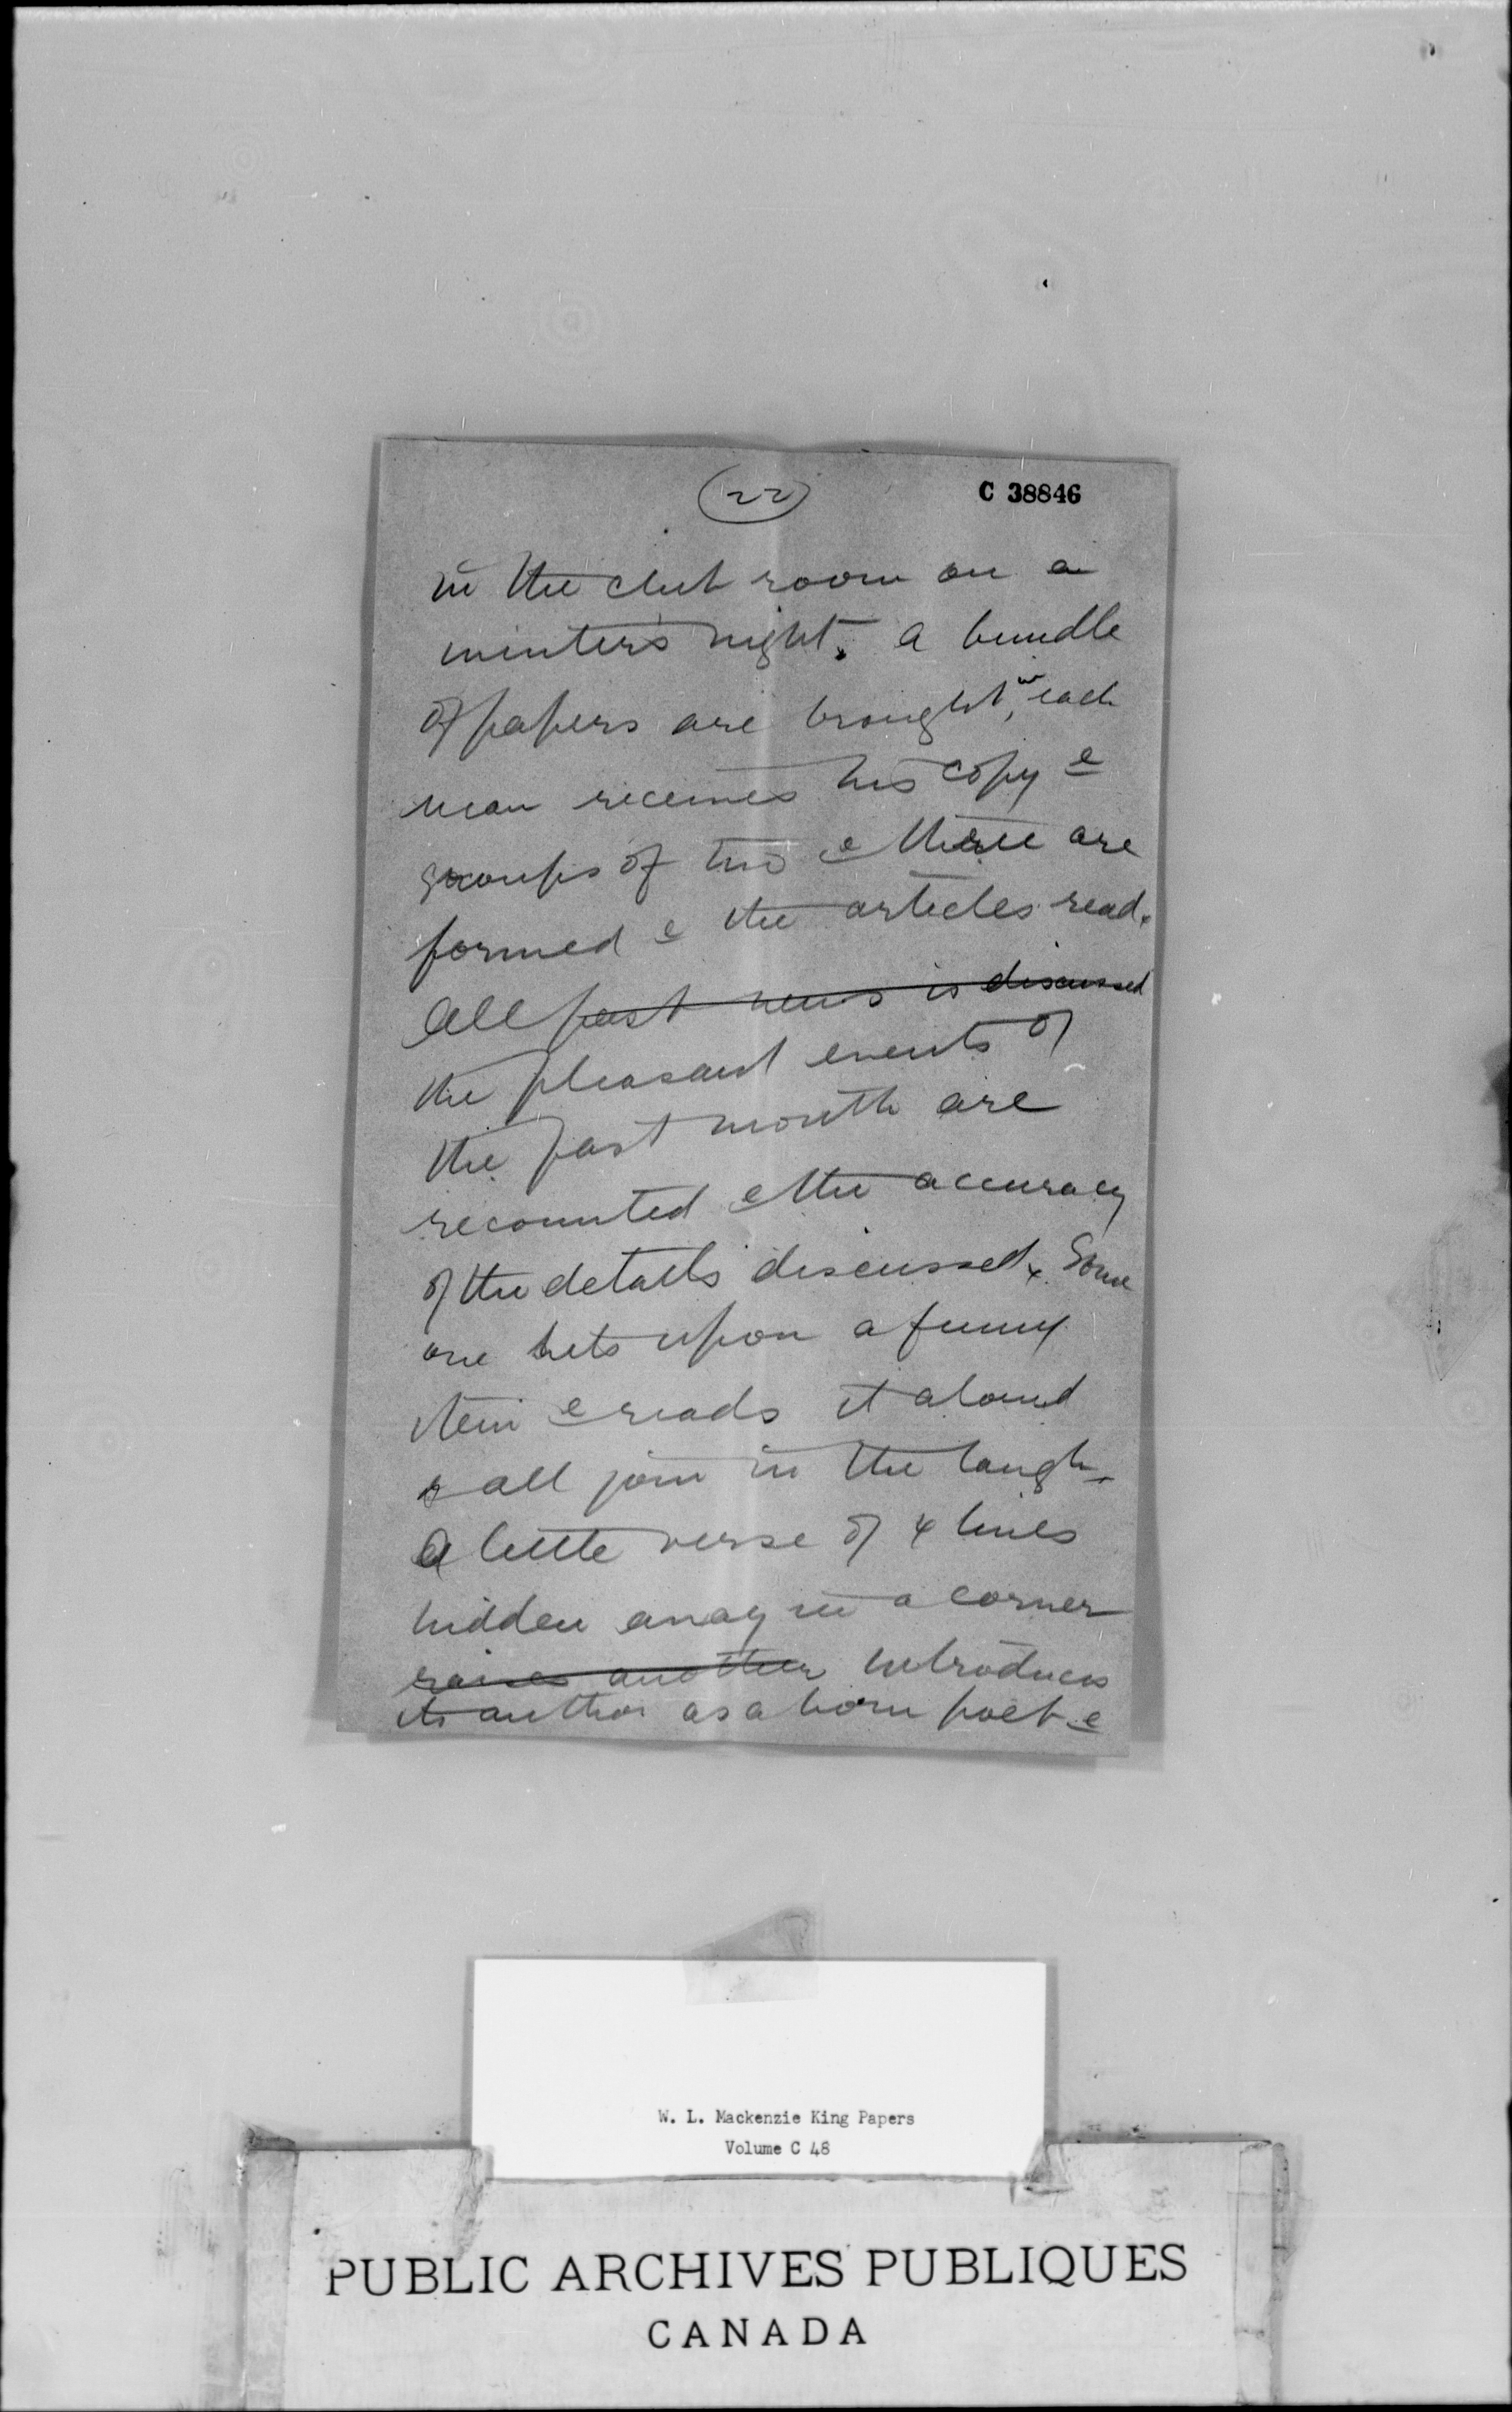 (22)
C 38846
in the club room on a
winter's night. A bundle
of papers are brought in, each
man receives his copy &
groups of two & three are
formed & the articles read.
All past news is discussed
the pleasant events of
the past month are
recounted & the accuracy
of the details discussed. Some
one hits upon a funny
item & reads it aloud
& all join in the laugh.
A little verse of 4 lines
hidden away in a corner
raises another introduces
its author as a born poet &
W. L. Mackenzie King Papers
Volume C 48
PUBLIC ARCHIVES PUBLIQUES
CANADA